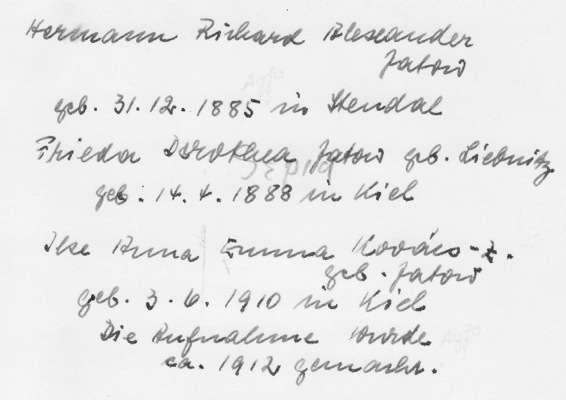 Hermann Richard Alexander
Jatow
geb. 31.12.1885 in Stendal
Frieda Dorothea Jatow geb. Liebnitz
geb. 14.4.1888 in Kiel
Ilse Anna Emma Kovács-Z.
geb. Jatow
geb. 3.6.1910 in Kiel
Die Aufnahme wurde
ca. 1912 gemacht.